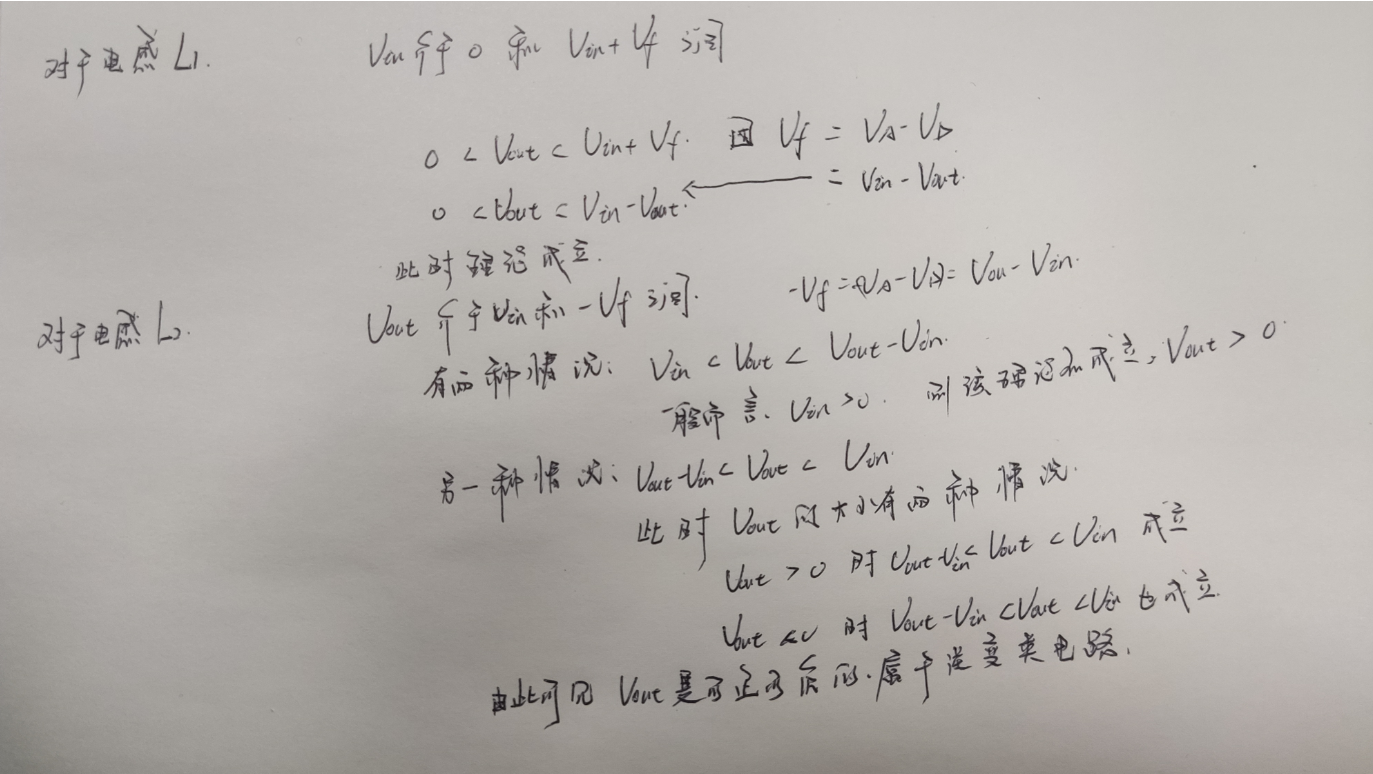 对于电感 L1. Vin 介于 0 和 Vin + Vf 之间
0 < Vout < Vin + Vf. 因 Vf = VA - VD
0 < Vout < Vin - Vout. ← = Vin - Vout.
此时理论成立.
对于电感 L2. Vout 介于 Vin 和 - Vf 之间. -Vf = -(VA - VD) = Vou - Vin.
有两种情况: Vin < Vout < Vout - Vin.
一般而言、Vin > 0. 则该理论不成立, Vout > 0.
另一种情况: Vout - Vin < Vout < Vin.
此时 Vout 的大小有两种情况.
Vout > 0 时 Vout - Vin < Vout < Vin 成立
Vout < 0 时 Vout - Vin < Vout < Vin 也成立.
由此可见 Vout 是可正可负的. 属于逆变类电路.